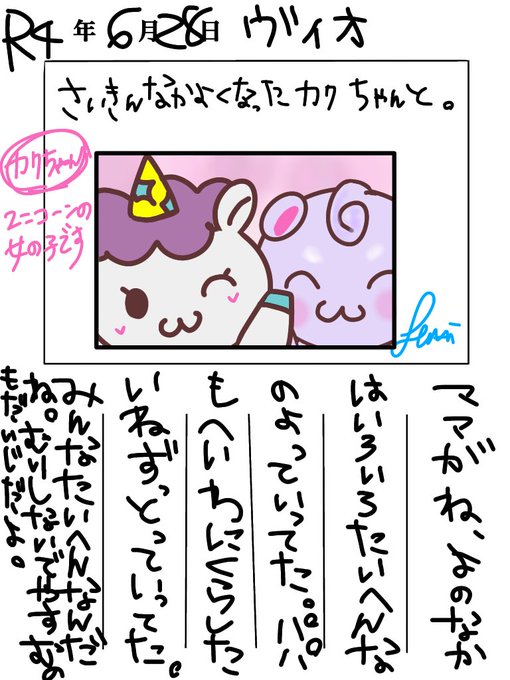 R4年6月28日 ヴィオ
さいきんなかよくなったカクちゃんと。
カクちゃん
ユニコーンの
女の子です
ママがね、よのなか
はいろいろたいへんな
のよっていってた。パパ
もへいわにくらした
いねずっとっていってた。
みんなたいへんなんだ
ね。むりしないでやすむの
もだいじだよ。